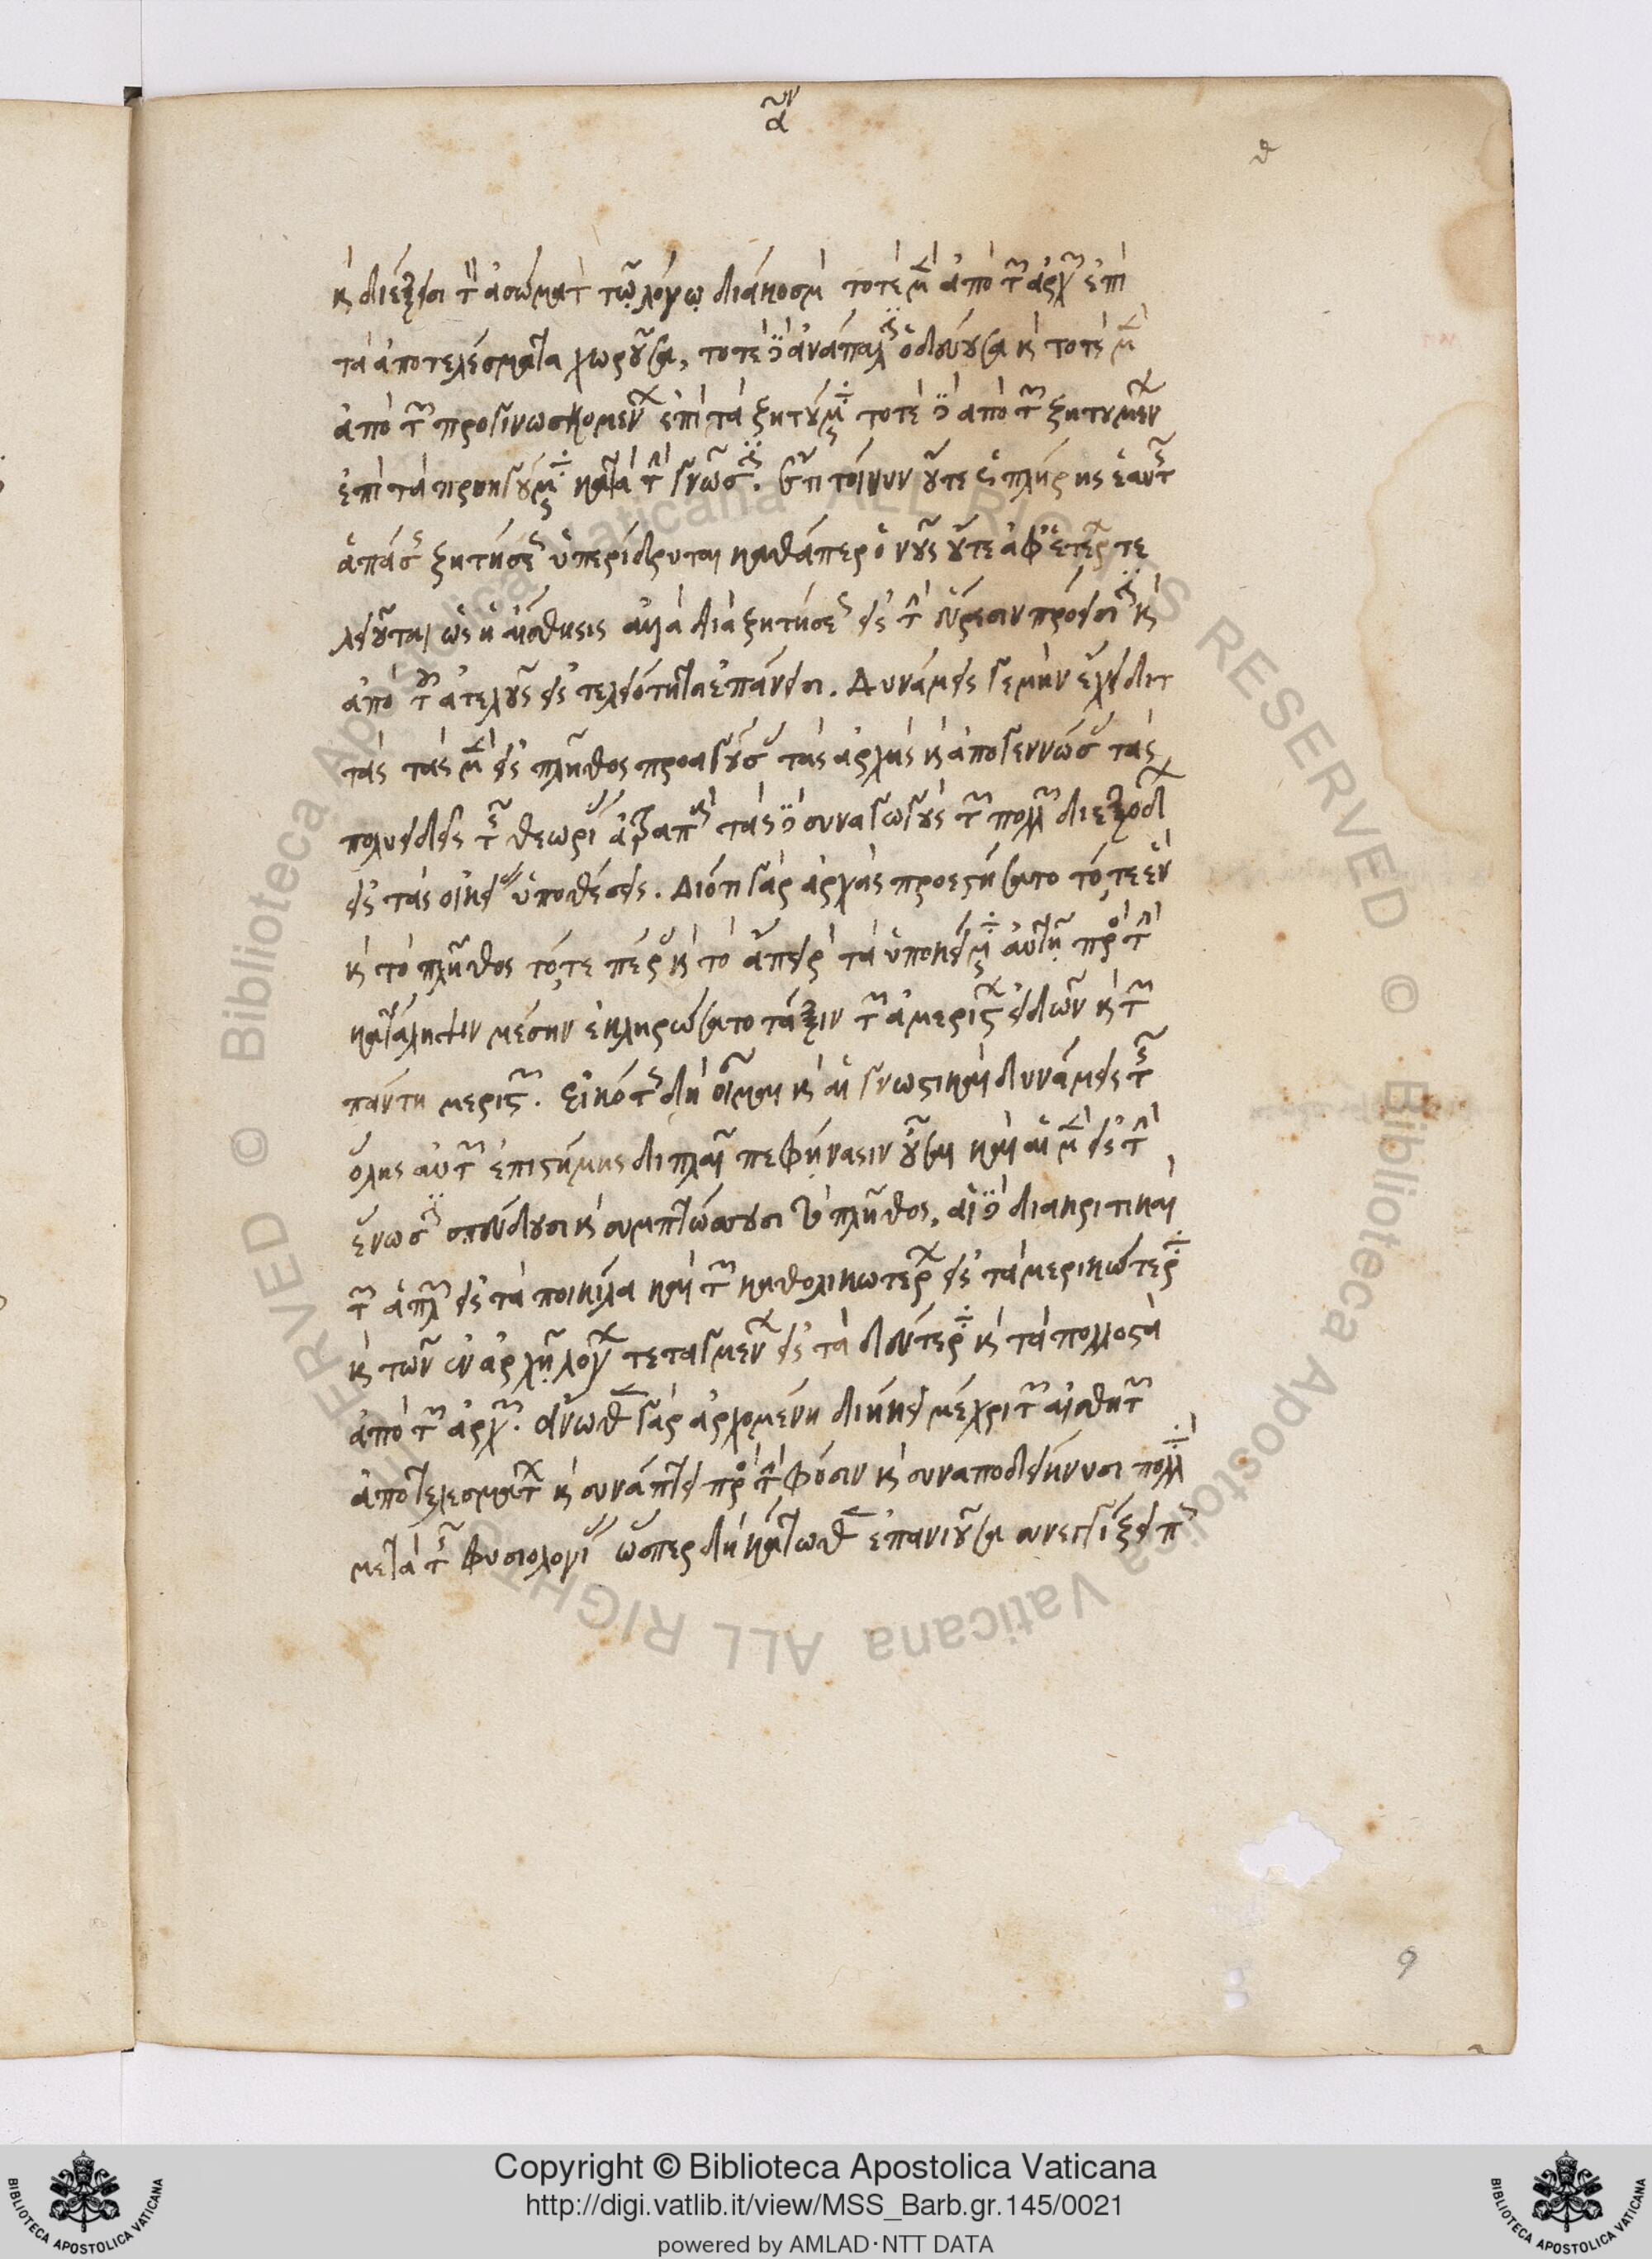 αον
θ
καὶ διέξεισι τὸν ἀσώματον τῷ λόγῳ διάκοσμον τοτὲ μὲν ἀπὸ τῶν ἀρχῶν ἐπὶ
τὰ ἀποτελέσματα χωροῦσα, τοτὲ δὲ ἀνάπαλιν ὁδεύουσα καὶ τοτὲ μὲν
ἀπὸ τῶν προγινωσκομένων ἐπὶ τὰ ζητούμενα τοτὲ δὲ ἀπὸ τῶν ζητουμένων
ἐπὶ τὰ προηγούμενα κατὰ τὴν γνῶσιν. ἔτι τοίνυν οὔτε ὡς πλήρης ἑαυτῆς
ἁπάσης ζητήσεως ὑπερίδρυται καθάπερ ὁ νοῦς οὔτε ἀφ' ἑτέρων τε
λειοῦται ὡς ἡ αἴσθησις ἀλλὰ διὰ ζητήσεως εἰς τὴν εὕρεσιν πρόεισιν καὶ
ἀπὸ τοῦ ἀτελοῦς εἰς τελειότητα ἐπάνεισι. Δυνάμεις γε μὴν ἔχει διτ
τὰς τὰς μὲν εἰς πλῆθος προαγούσας τὰς ἀρχὰς καὶ ἀπογεννώσας τὰς
πολυειδεῖς τῆς θεωρίας ἀτραπούς τὰς δὲ συναγωγοὺς τῶν πολλῶν διεξόδων
εἰς τὰς οἰκείας ὑποθέσεις. Διότι γὰρ ἀρχὰς προεστήσατο τό, τε ἓν
καὶ τὸ πλῆθος τό, τε πέρας καὶ τὸ ἄπειρον τὰ ὑποκείμενα αὐτῇ πρὸς τὴν
κατάληψιν μέσην ἐκληρώσατο τάξιν τῶν ἀμερίστων εἰδῶν καὶ τῶν
πάντῃ μεριστῶν. Εἰκότως δὴ οἶμαι καὶ αἱ γνωστικαὶ δυνάμεις τῆς
ὅλης αὐτῶν ἐπιστήμης διπλαῖ πεφήνασιν οὖσαι καὶ αἱ μὲν εἰς τὴν
ἕνωσιν σπεύδουσι καὶ συμπτύσσουσι τὸ πλῆθος, αἱ δὲ διακριτικαὶ
τῶν ἁπλῶν εἰς τὰ ποικίλα καὶ τῶν καθολικωτέρων εἰς τὰ μερικώτερα
καὶ τῶν ἐν ἀρχῇ λόγων τεταγμένων εἰς τὰ δεύτερα καὶ τὰ πολλοστὰ
ἀπὸ τῶν ἀρχῶν. ἄνωθεν γὰρ ἀρχομένη διήκει μέχρι τῶν αἰσθητῶν
ἀποτελεσμάτων καὶ συνάπτει πρὸς τὴν φύσιν καὶ συναποδείκνυσι πολλὰ
μετὰ τῆς φυσιολογίας ὥσπερ δὴ κάτωθεν ἐπανιοῦσα συνεγγίζει πως
9
Copyright © Biblioteca Apostolica Vaticana
http://digi.vatlib.it/view/MSS_Barb.gr.145/0021
powered by AMLAD·NTT DATA